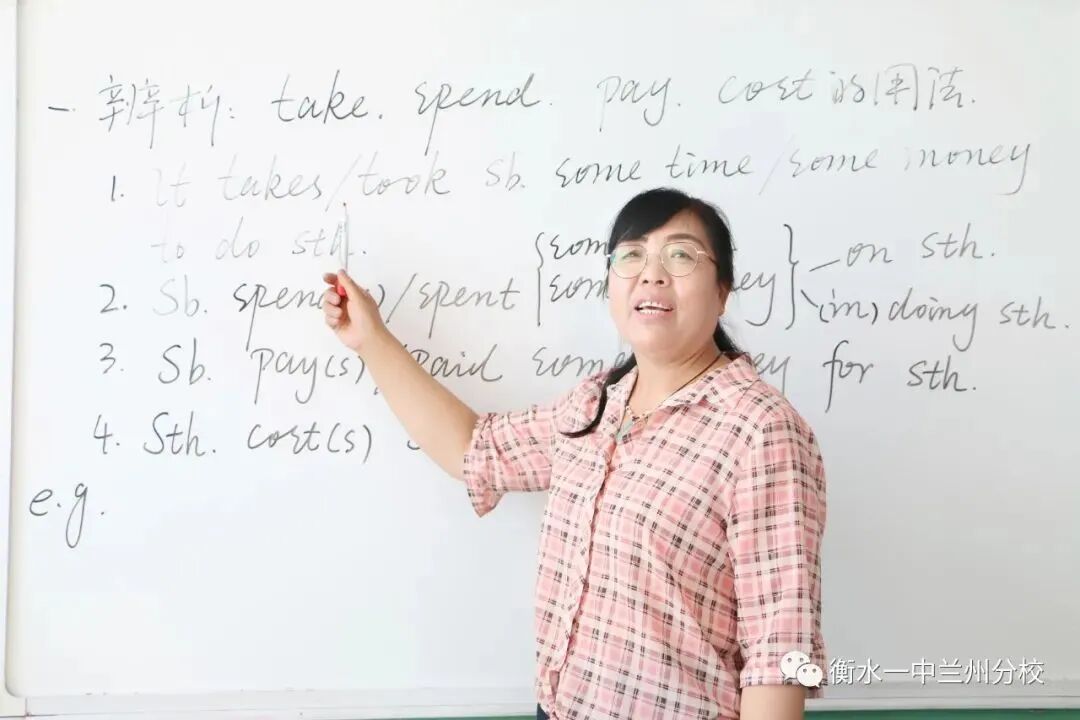 一 辨析: take. spend. pay. cost的用法.
1. It takes/took sb. some time/some money
to do sth.
2. Sb. spend(s)/spent { } on sth.
(in) doing sth.
3. Sb. pay(s)/paid for sth.
4. Sth. cost(s)
e.g.
衡水一中兰州分校